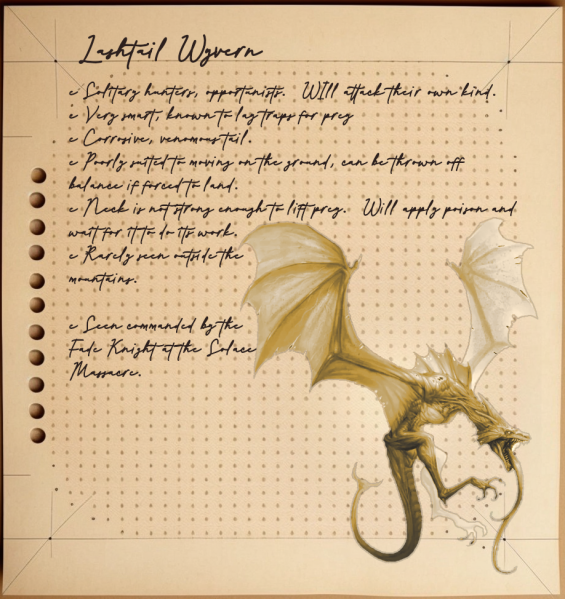 Lashtail Wyvern
• Solitary hunters, opportunists. WIll attack their own kind.
• Very smart, known to lay traps for prey
• Corrosive, venomous tail.
• Poorly suited to moving on the ground, can be thrown off
balance if forced to land.
• Neck is not strong enough to lift prey. Will apply poison and
wait for it to do its work.
• Rarely seen outside the
mountains.
• Seen commanded by the
Fade Knight at the Solace
Massacre.